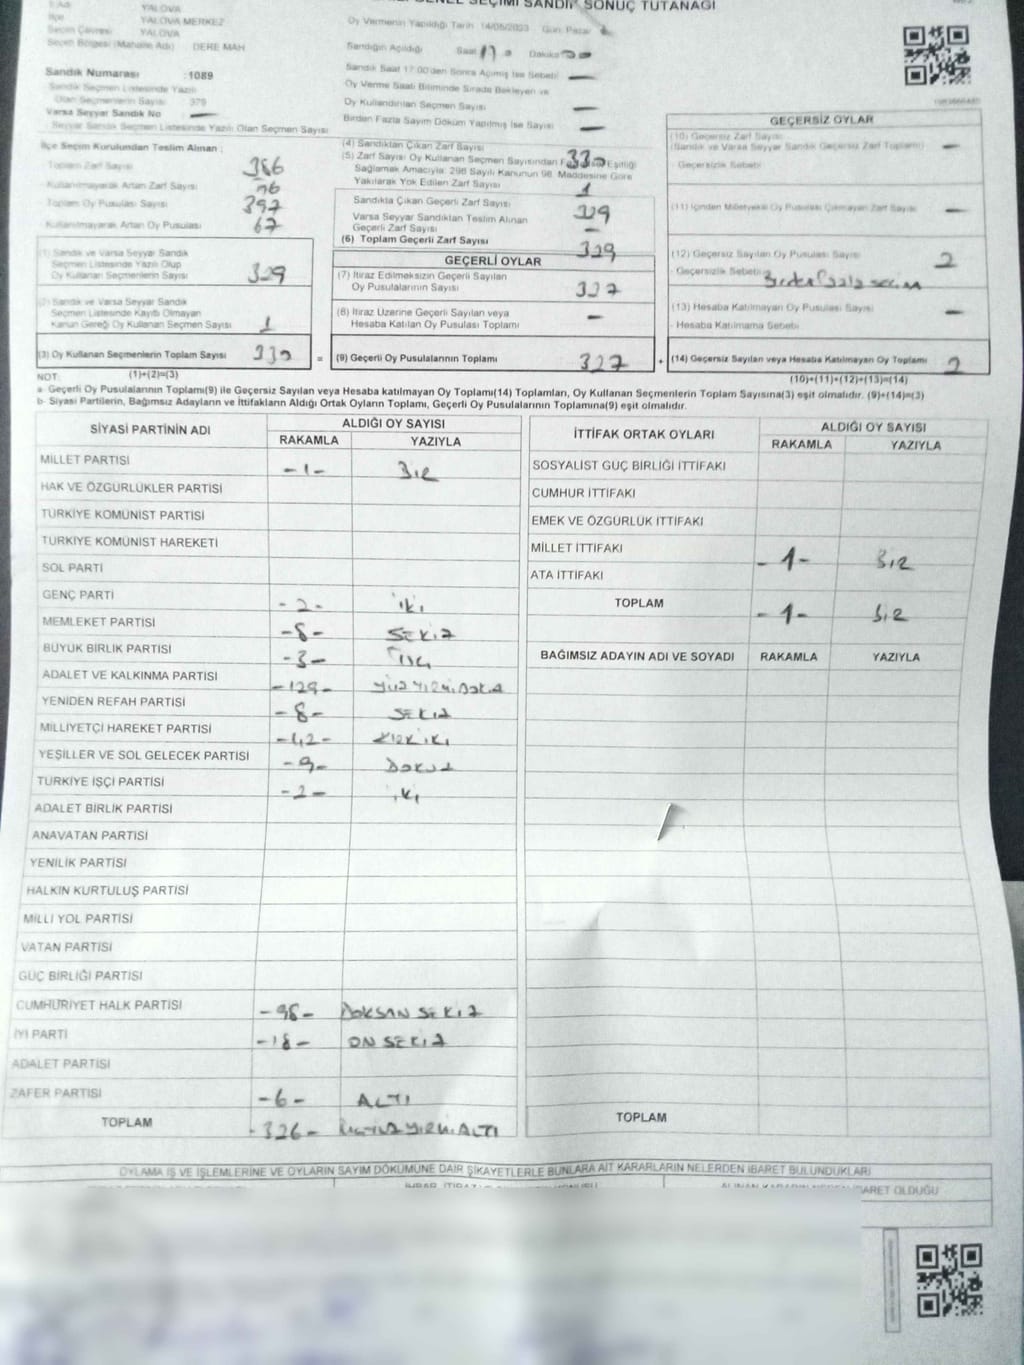 GENEL SEÇİMİ SANDIK SONUÇ TUTANAĞI
İl Adı : YALOVA
İlçe : YALOVA MERKEZ
Seçim Çevresi : YALOVA
Seçim Bölgesi (Mahalle Adı) : DERE MAH
Sandık Numarası : 1089
Sandık Seçmen Listesinde Yazılı
Olan Seçmenlerin Sayısı : 379
Varsa Seyyar Sandık No —
Seyyar Sandık Seçmen Listesinde Yazılı Olan Seçmen Sayısı
İlçe Seçim Kurulundan Teslim Alınan :
Toplam Zarf Sayısı 386
Kullanılmayarak Artan Zarf Sayısı
Toplam Oy Pusulası Sayısı 397
Kullanılmayarak Artan Oy Pusulası 67
(1) Sandık ve Varsa Seyyar Sandık
Seçmen Listesinde Yazılı Olup
Oy Kullanan Seçmenlerin Sayısı 329
(2) Sandık ve Varsa Seyyar Sandık
Seçmen Listesinde Kayıtlı Olmayan
Kanun Gereği Oy Kullanan Seçmen Sayısı 1
(3) Oy Kullanan Seçmenlerin Toplam Sayısı 330
(1)+(2)=(3)
Oy Vermenin Yapıldığı Tarih 14/05/2023 Gün: Pazar
Sandığın Açıldığı Saat 17 Dakika
Sandık Saat 17:00'den Sonra Açılmış İse Sebebi —
Oy Verme Saati Bitiminde Sırada Bekleyen ve
Oy Kullandırılan Seçmen Sayısı —
Birden Fazla Sayım Döküm Yapılmış İse Sayısı —
(4) Sandıktan Çıkan Zarf Sayısı 330
(5) Zarf Sayısı Oy Kullanan Seçmen Sayısından Fazla İse Eşitliği
Sağlamak Amacıyla; 298 Sayılı Kanunun 98. Maddesine Göre
Yakılarak Yok Edilen Zarf Sayısı 1
Sandıkta Çıkan Geçerli Zarf Sayısı 329
Varsa Seyyar Sandıktan Teslim Alınan
Geçerli Zarf Sayısı —
(6) Toplam Geçerli Zarf Sayısı 329
GEÇERLİ OYLAR
(7) İtiraz Edilmeksizin Geçerli Sayılan
Oy Pusulalarının Sayısı 327
(8) İtiraz Üzerine Geçerli Sayılan veya
Hesaba Katılan Oy Pusulası Toplamı —
= (9) Geçerli Oy Pusulalarının Toplamı 327
GEÇERSİZ OYLAR
(10) Geçersiz Zarf Sayısı
(Sandık ve Varsa Seyyar Sandık Geçersiz Zarf Toplamı) —
Geçersizlik Sebebi
(11) İçinden Milletvekili Oy Pusulası Çıkmayan Zarf Sayısı —
(12) Geçersiz Sayılan Oy Pusulası Sayısı 2
- Geçersizlik Sebebi: Birden fazla seçim
(13) Hesaba Katılmayan Oy Pusulası Sayısı —
- Hesaba Katılmama Sebebi
+ (14) Geçersiz Sayılan veya Hesaba Katılmayan Oy Toplamı 2
(10)+(11)+(12)+(13)=(14)
NOT:
a- Geçerli Oy Pusulalarının Toplamı(9) ile Geçersiz Sayılan veya Hesaba katılmayan Oy Toplamı(14) Toplamları, Oy Kullanan Seçmenlerin Toplam Sayısına(3) eşit olmalıdır. (9)+(14)=(3)
b- Siyasi Partilerin, Bağımsız Adayların ve İttifakların Aldığı Ortak Oyların Toplamı, Geçerli Oy Pusulalarının Toplamına(9) eşit olmalıdır.
SİYASİ PARTİNİN ADI ALDIĞI OY SAYISI
RAKAMLA YAZIYLA
MİLLET PARTİSİ -1- BİR
HAK VE ÖZGÜRLÜKLER PARTİSİ
TÜRKİYE KOMÜNİST PARTİSİ
TÜRKİYE KOMÜNİST HAREKETİ
SOL PARTİ
GENÇ PARTİ -2- İKİ
MEMLEKET PARTİSİ -8- SEKİZ
BÜYÜK BİRLİK PARTİSİ -3- ÜÇ
ADALET VE KALKINMA PARTİSİ -129- YÜZ YİRMİ DOKUZ
YENİDEN REFAH PARTİSİ -8- SEKİZ
MİLLİYETÇİ HAREKET PARTİSİ -42- KIRK İKİ
YEŞİLLER VE SOL GELECEK PARTİSİ -9- DOKUZ
TÜRKİYE İŞÇİ PARTİSİ -2- İKİ
ADALET BİRLİK PARTİSİ
ANAVATAN PARTİSİ
YENİLİK PARTİSİ
HALKIN KURTULUŞ PARTİSİ
MİLLİ YOL PARTİSİ
VATAN PARTİSİ
GÜÇ BİRLİĞİ PARTİSİ
CUMHURİYET HALK PARTİSİ -98- DOKSAN SEKİZ
İYİ PARTİ -18- ON SEKİZ
ADALET PARTİSİ
ZAFER PARTİSİ -6- ALTI
TOPLAM -326- ÜÇYÜZ YİRMİ ALTI
İTTİFAK ORTAK OYLARI ALDIĞI OY SAYISI
RAKAMLA YAZIYLA
SOSYALİST GÜÇ BİRLİĞİ İTTİFAKI
CUMHUR İTTİFAKI
EMEK VE ÖZGÜRLÜK İTTİFAKI
MİLLET İTTİFAKI -1- BİR
ATA İTTİFAKI
TOPLAM -1- BİR
BAĞIMSIZ ADAYIN ADI VE SOYADI RAKAMLA YAZIYLA
TOPLAM
OYLAMA İŞ VE İŞLEMLERİNE VE OYLARIN SAYIM DÖKÜMÜNE DAİR ŞİKAYETLERLE BUNLARA AİT KARARLARIN NELERDEN İBARET BULUNDUKLARI
ALINAN KARARIN NEDEN İBARET OLDUĞU